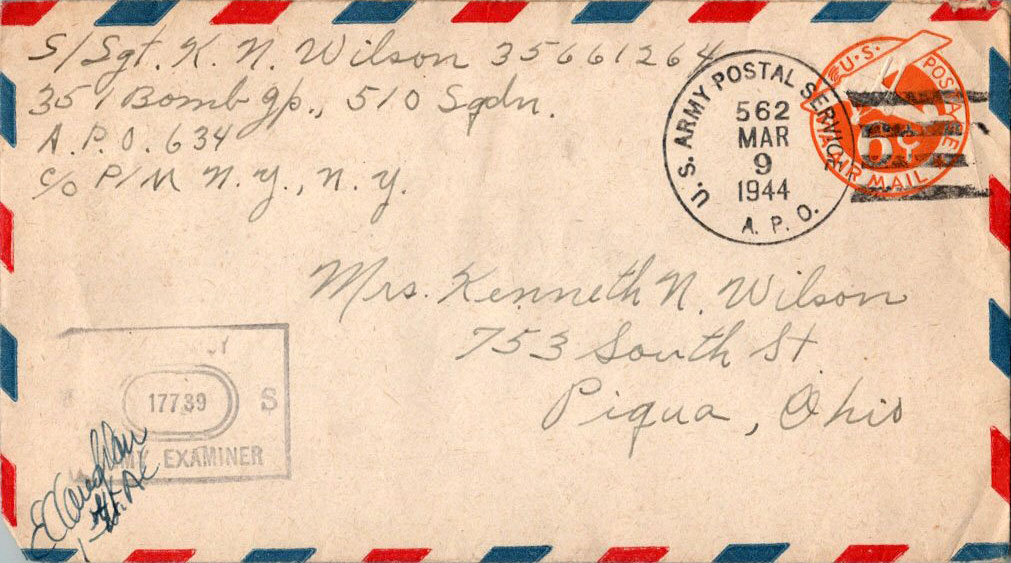 S/Sgt. K. N. Wilson 35661264
351 Bomb Gp., 510 Sqdn.
A.P.O. 634
c/o P/M N.Y., N.Y.
U.S. ARMY POSTAL SERVICE
562
MAR
9
1944
A. P. O.
U.S. POSTAGE
6¢
VIA AIR MAIL
Mrs. Kenneth N. Wilson
753 South St
Piqua, Ohio
17739
S
EXAMINER